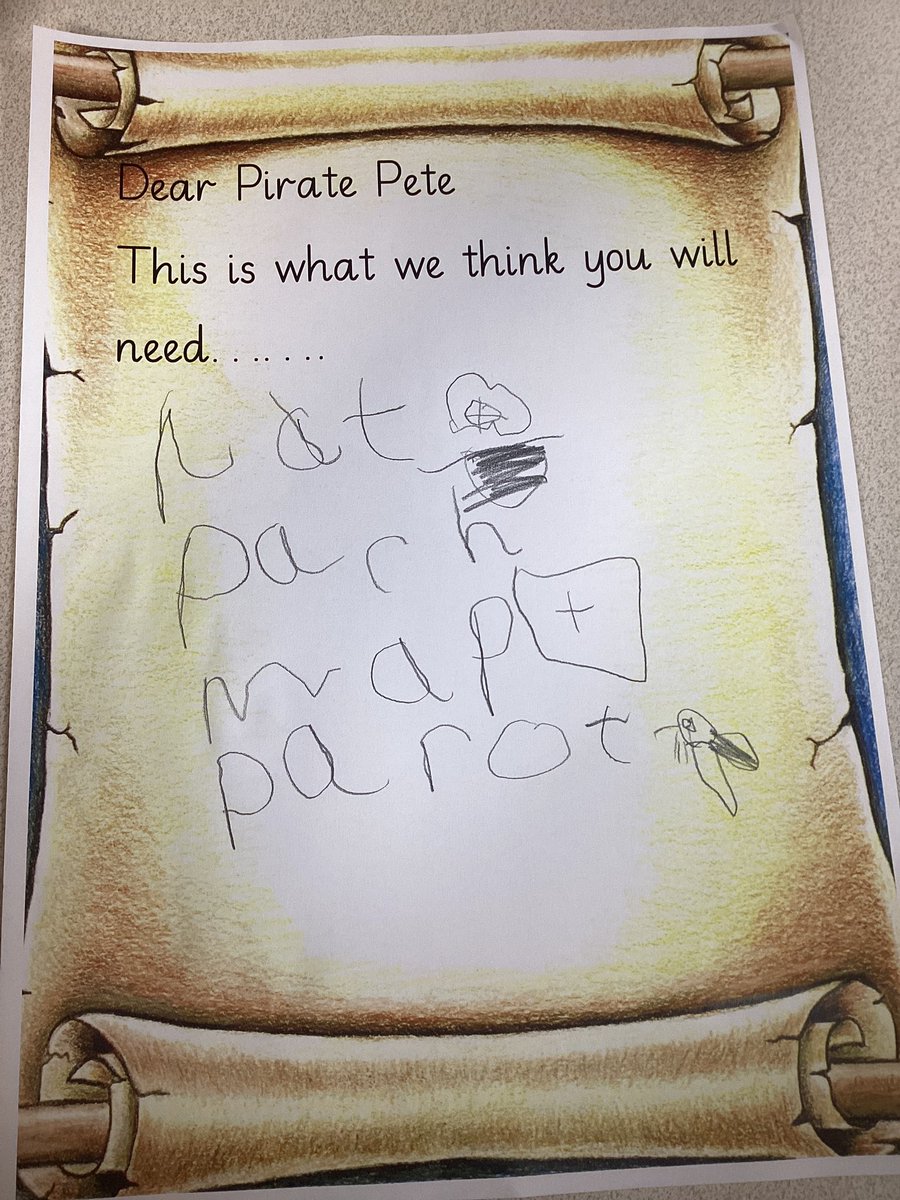 Dear Pirate Pete
This is what we think you will
need.......
hat
pach
map
parot